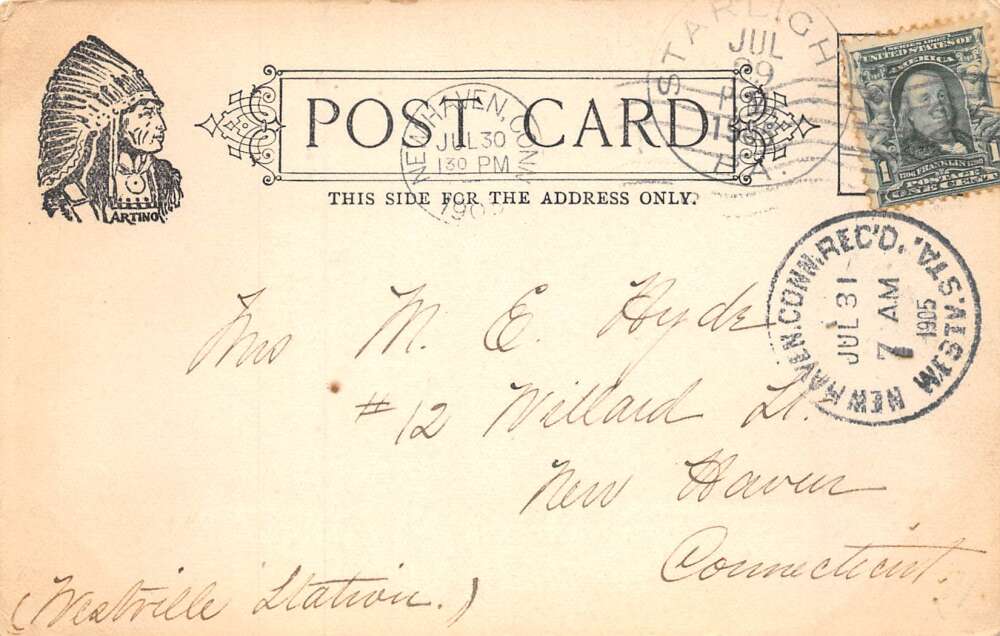 ARTINO
POST CARD
THIS SIDE FOR THE ADDRESS ONLY.
STARLIGHT
JUL
29
PA.
NEW HAVEN, CONN
JUL 30
130 PM
1905
SERIES 1902
UNITED STATES OF
AMERICA
1706 FRANKLIN 1790
POSTAGE
1 ONE CENT 1
NEW HAVEN. CONN. REC'D. W'STM. STA.
JUL 31
7 AM
1905
Mrs M. E. Hyde
#12 Willard St.
New Haven
Connecticut.
(Westville Station.)